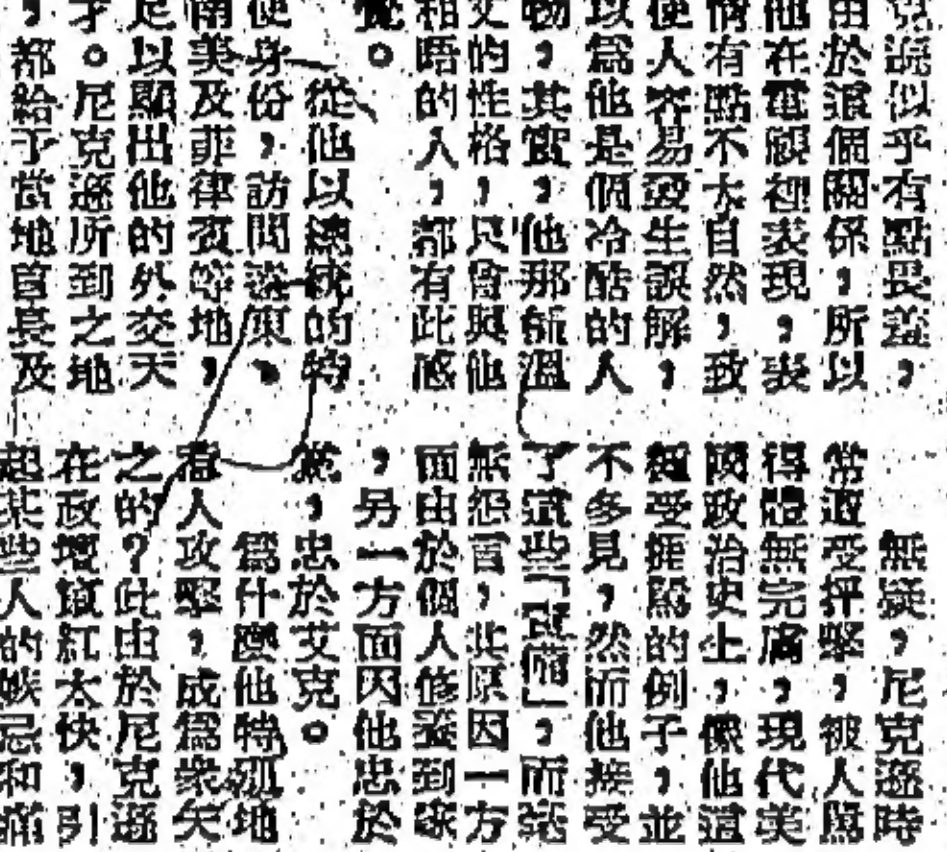 克遜似乎有點畏羞,
由於這個關係,所以
他在電視裡表現,表
情有點不太自然,致
使人容易發生誤解,
以爲他是個冷酷的人
物,其實,他那種溫
文的性格,只會與他
和晤的人,都有此感
覺。
從他以總統的特
使身份,訪問遠東、
南美及菲律賓等地,
足以顯出他的外交天
才。尼克遜所到之地
都給予當地首長及
無疑,尼克遜時
常遭受抨擊,被人
得體無完膚,現代美
國政治史上,像他這
種受捱駡的例子,並
不多見,然而他接受
了這些「」,而毫
無怨言,其原因一方
面由於個人修養到家
,另一方面因他忠於
黨,忠於艾克。
爲什麽他特別地
人攻擊,成爲衆矢
之的?此由於尼克遜
在政壇竄紅太快,引
起某些人的嫉忌和痛